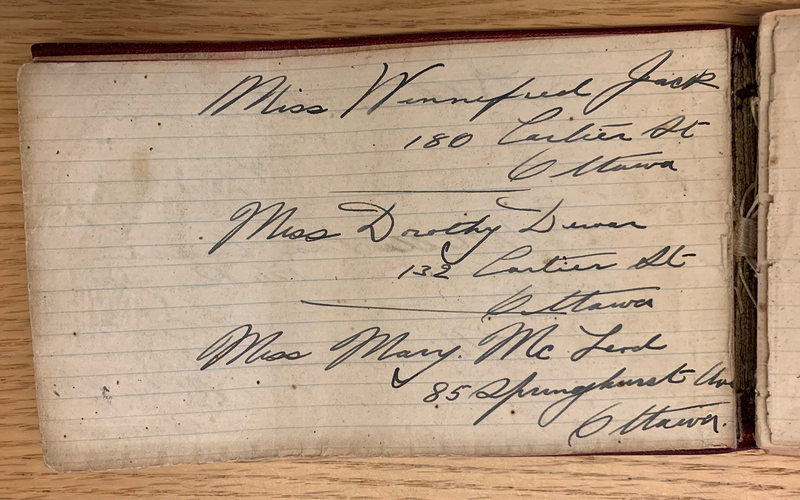 Miss Winnefred Jack
180 Cartier St
Ottawa
Miss Dorothy Dewar
132 Cartier St
Ottawa
Miss Mary. Mc Leod
85 Springhurst Ave
Ottawa.